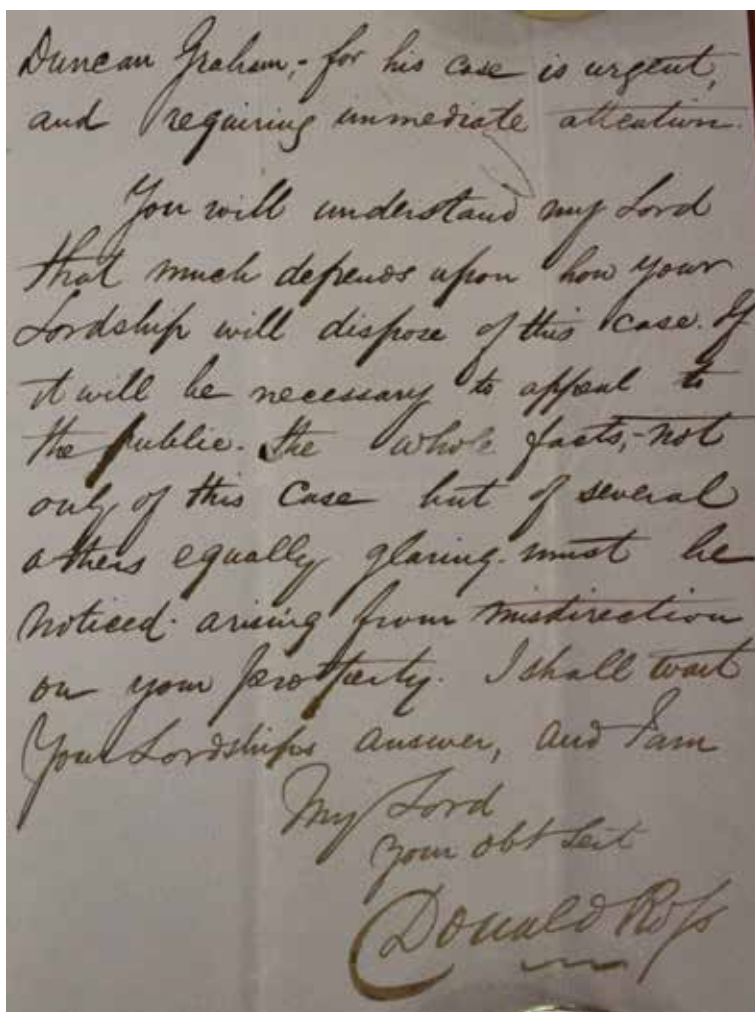 Duncan Graham,- for his case is urgent,
and requiring immediate attention.
You will understand my Lord
that much depends upon how your
Lordship will dispose of this case. If
it will be necessary to appeal to
the public. the whole facts,- not
only of this case but of several
others equally glaring must be
noticed. arising from misdirection
on your property. I shall wait
Your Lordships answer, and I am
My Lord
your obt Sert
Donald Ross